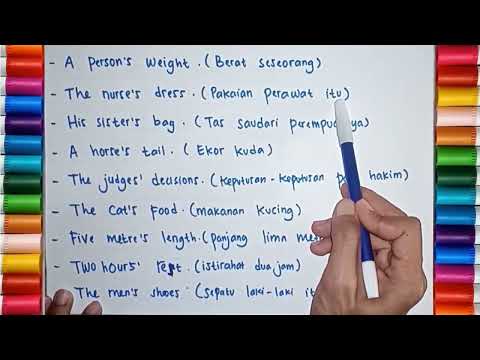 - A person's weight. (Berat seseorang)
- The nurse's dress. (Pakaian perawat itu)
- His sister's bag. (Tas saudari ya)
- A horse's tail. (Ekor kuda)
- The judges' decisions. (keputusan-keputusan hakim)
- The cat's Food. (makanan kucing)
- Five metre's length. (panjang lima
- Two hours' rest. (istirahat dua jam)
The men's shoes. (sepatu laki-laki